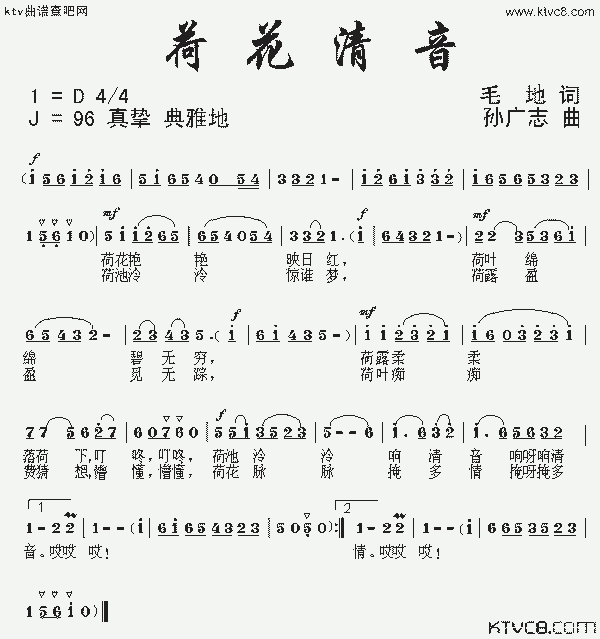 ktv曲谱查吧网 www.ktvc8.com
荷花清音
1 = D 4/4 毛 地 词
J = 96 真挚 典雅地 孙广志 曲
f
(i 5 6 i 2 i 6 | 5 i 6 5 4 0 5 4 | 3 3 2 1 - | i 2 6 i 3 3 2 | 1 6 5 6 5 3 2 3 |
mf f mf
1 5 6 1 0) | 5 i i 2 6 5 | 6 5 4 0 5 4 | 3 3 2 1 . (i | 6 4 3 2 1 - ) | 2 2 3 5 3 6 i |
荷花艳 艳 映日 红, 荷叶 绵
荷池泠 泠 惊谁 梦, 荷露 盈
f mf
6 5 4 3 2 - | 2 3 4 2 3 5 . (i | 6 i 4 3 5 - ) | i i 2 3 2 i | i 6 0 3 2 3 i |
绵 碧 无 穷, 荷露柔 柔
盈 觅 无 踪, 荷叶痴 痴
f
7 7 5 6 2 7 | 6 0 7 6 0 | 5 5 i 3 5 2 3 | 5 - - 6 | i . 6 3 2 | 1 . 6 5 6 3 2 |
落荷 下,叮 咚,叮咚, 荷池 泠 泠 响 清 音 响呀响清
费猜 想,懵 懂,懵懂, 荷花 脉 脉 掩 多 情 掩呀掩多
1 2
1 - 2 2 | 1 - - (i | 6 i 6 5 4 3 2 3 | 5 0 5 0) :‖ 1 - 2 2 | 1 - - (i | 6 5 6 5 4 3 2 3 |
音。哎哎 哎! 情。哎哎 哎!
1 5 6 1 0) ‖
KTVC8.com